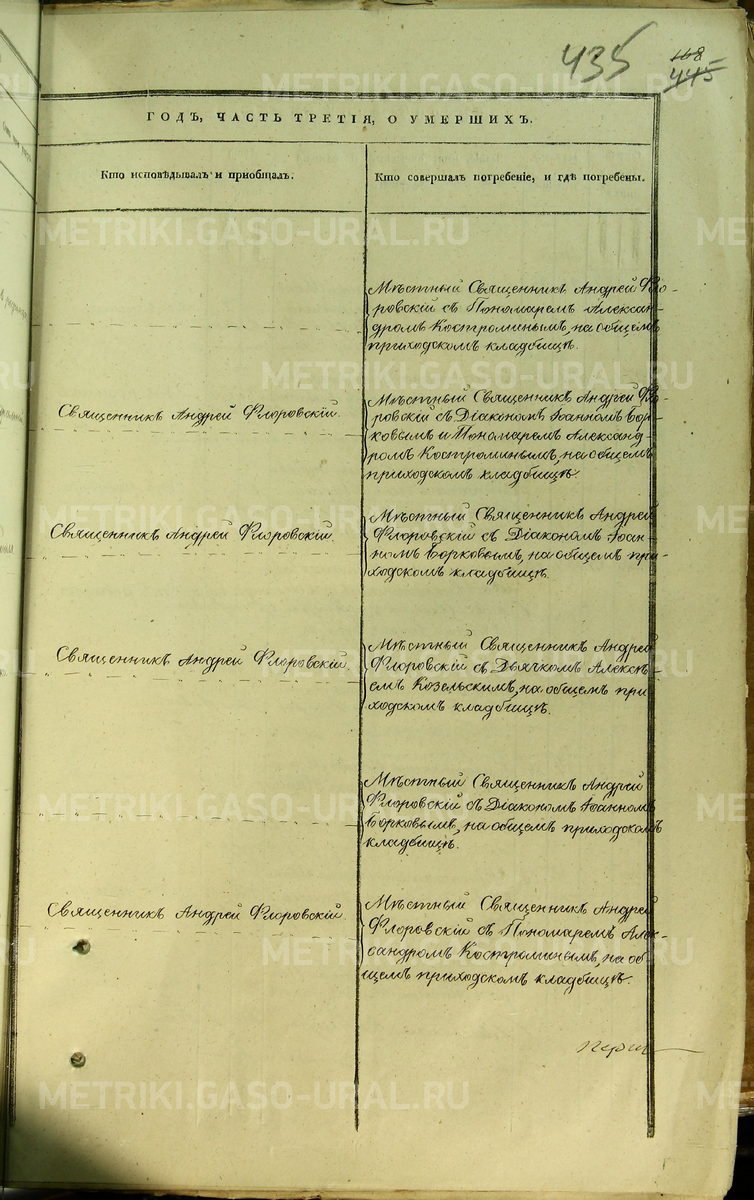 435
168
445
ГОДЪ, ЧАСТЬ ТРЕТІЯ, О УМЕРШИХЪ.
Кто исповѣдывалъ и приобщалъ.
Кто совершалъ погребеніе, и гдѣ погребены.
Мѣстный Священникъ Андрей Фло-
ровскій съ Пономаремъ Алексан-
дромъ Костроминымъ, на общемъ
приходскомъ кладбищѣ.
Священникъ Андрей Флоровскій.
Мѣстный Священникъ Андрей Фло-
ровскій съ Діакономъ Іоанномъ Бор-
ковымъ и Пономаремъ Александ-
ромъ Костроминымъ, на общемъ
приходскомъ кладбищѣ.
Священникъ Андрей Флоровскій.
Мѣстный Священникъ Андрей
Флоровскій съ Діакономъ Іоан-
номъ Борковымъ, на общемъ при-
ходскомъ кладбищѣ.
Священникъ Андрей Флоровскій.
Мѣстный Священникъ Андрей
Флоровскій съ Дьячкомъ Алексѣ-
емъ Козельскимъ, на общемъ при
ходскомъ кладбищѣ.
Мѣстный Священникъ Андрей
Флоровскій съ Діакономъ Іоанномъ
Борковымъ, на общемъ приходскомъ
кладбищѣ.
Священникъ Андрей Флоровскій.
Мѣстный Священникъ Андрей
Флоровскій съ Пономаремъ Алек-
сандромъ Костроминымъ, на об-
щемъ приходскомъ кладбищѣ.
METRIKI.GASO-URAL.RU